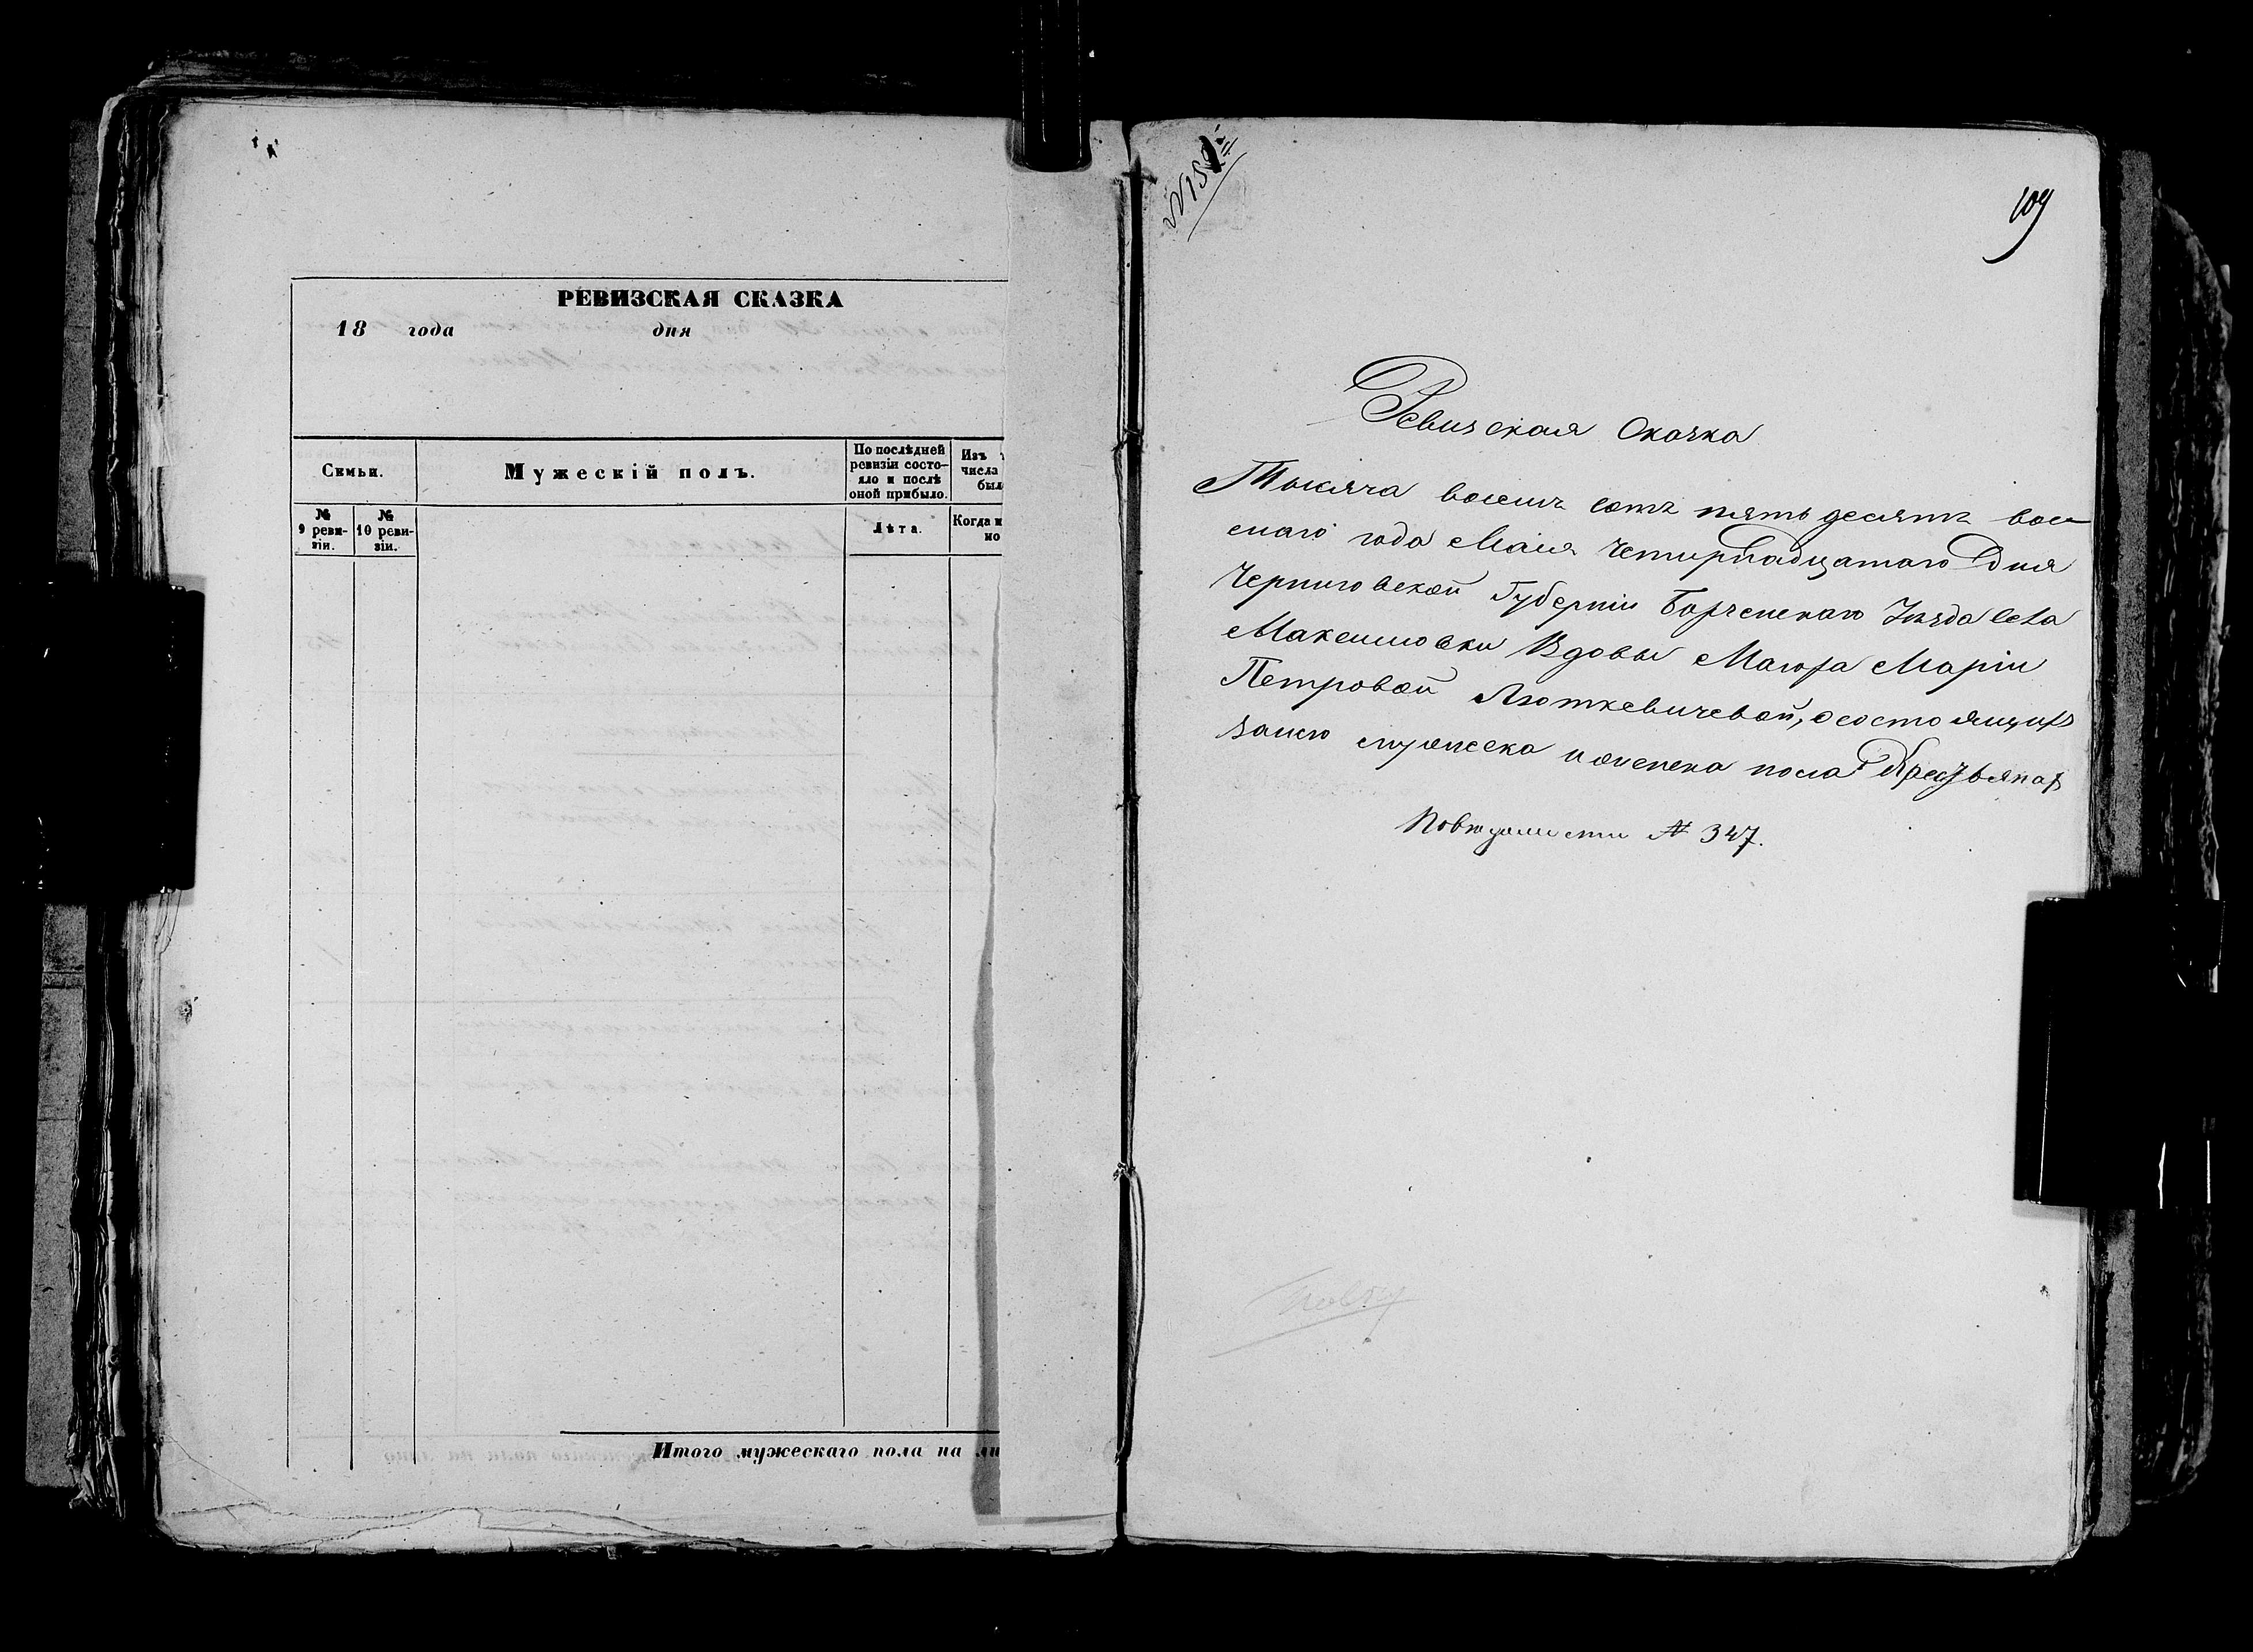 РЕВИЗСКАЯ СКАЗКА
18 года дня
Семьи.
Мужескій полъ.
По послѣдней ревизіи состо-
яло и послѣ
оной прибыло.
Изъ
числа
был
№
9 реви-
зіи.
№
10 реви-
зіи.
Лѣта.
Когда и
но
Итого мужескаго пола на ли
109
Ревизская Сказка
Тысяча восемъ сотъ пять десятъ вось
маго года Маія Четирнадцатаго Дня
Черниговской Губерніи Борзенскаго Уѣзда села
Максимовки Вдовы Маіора Маріи
Петровой Люткевичевой, о состоящихъ
заиею мужеска и женска пола Крестьянах
Повѣдомости № 347.